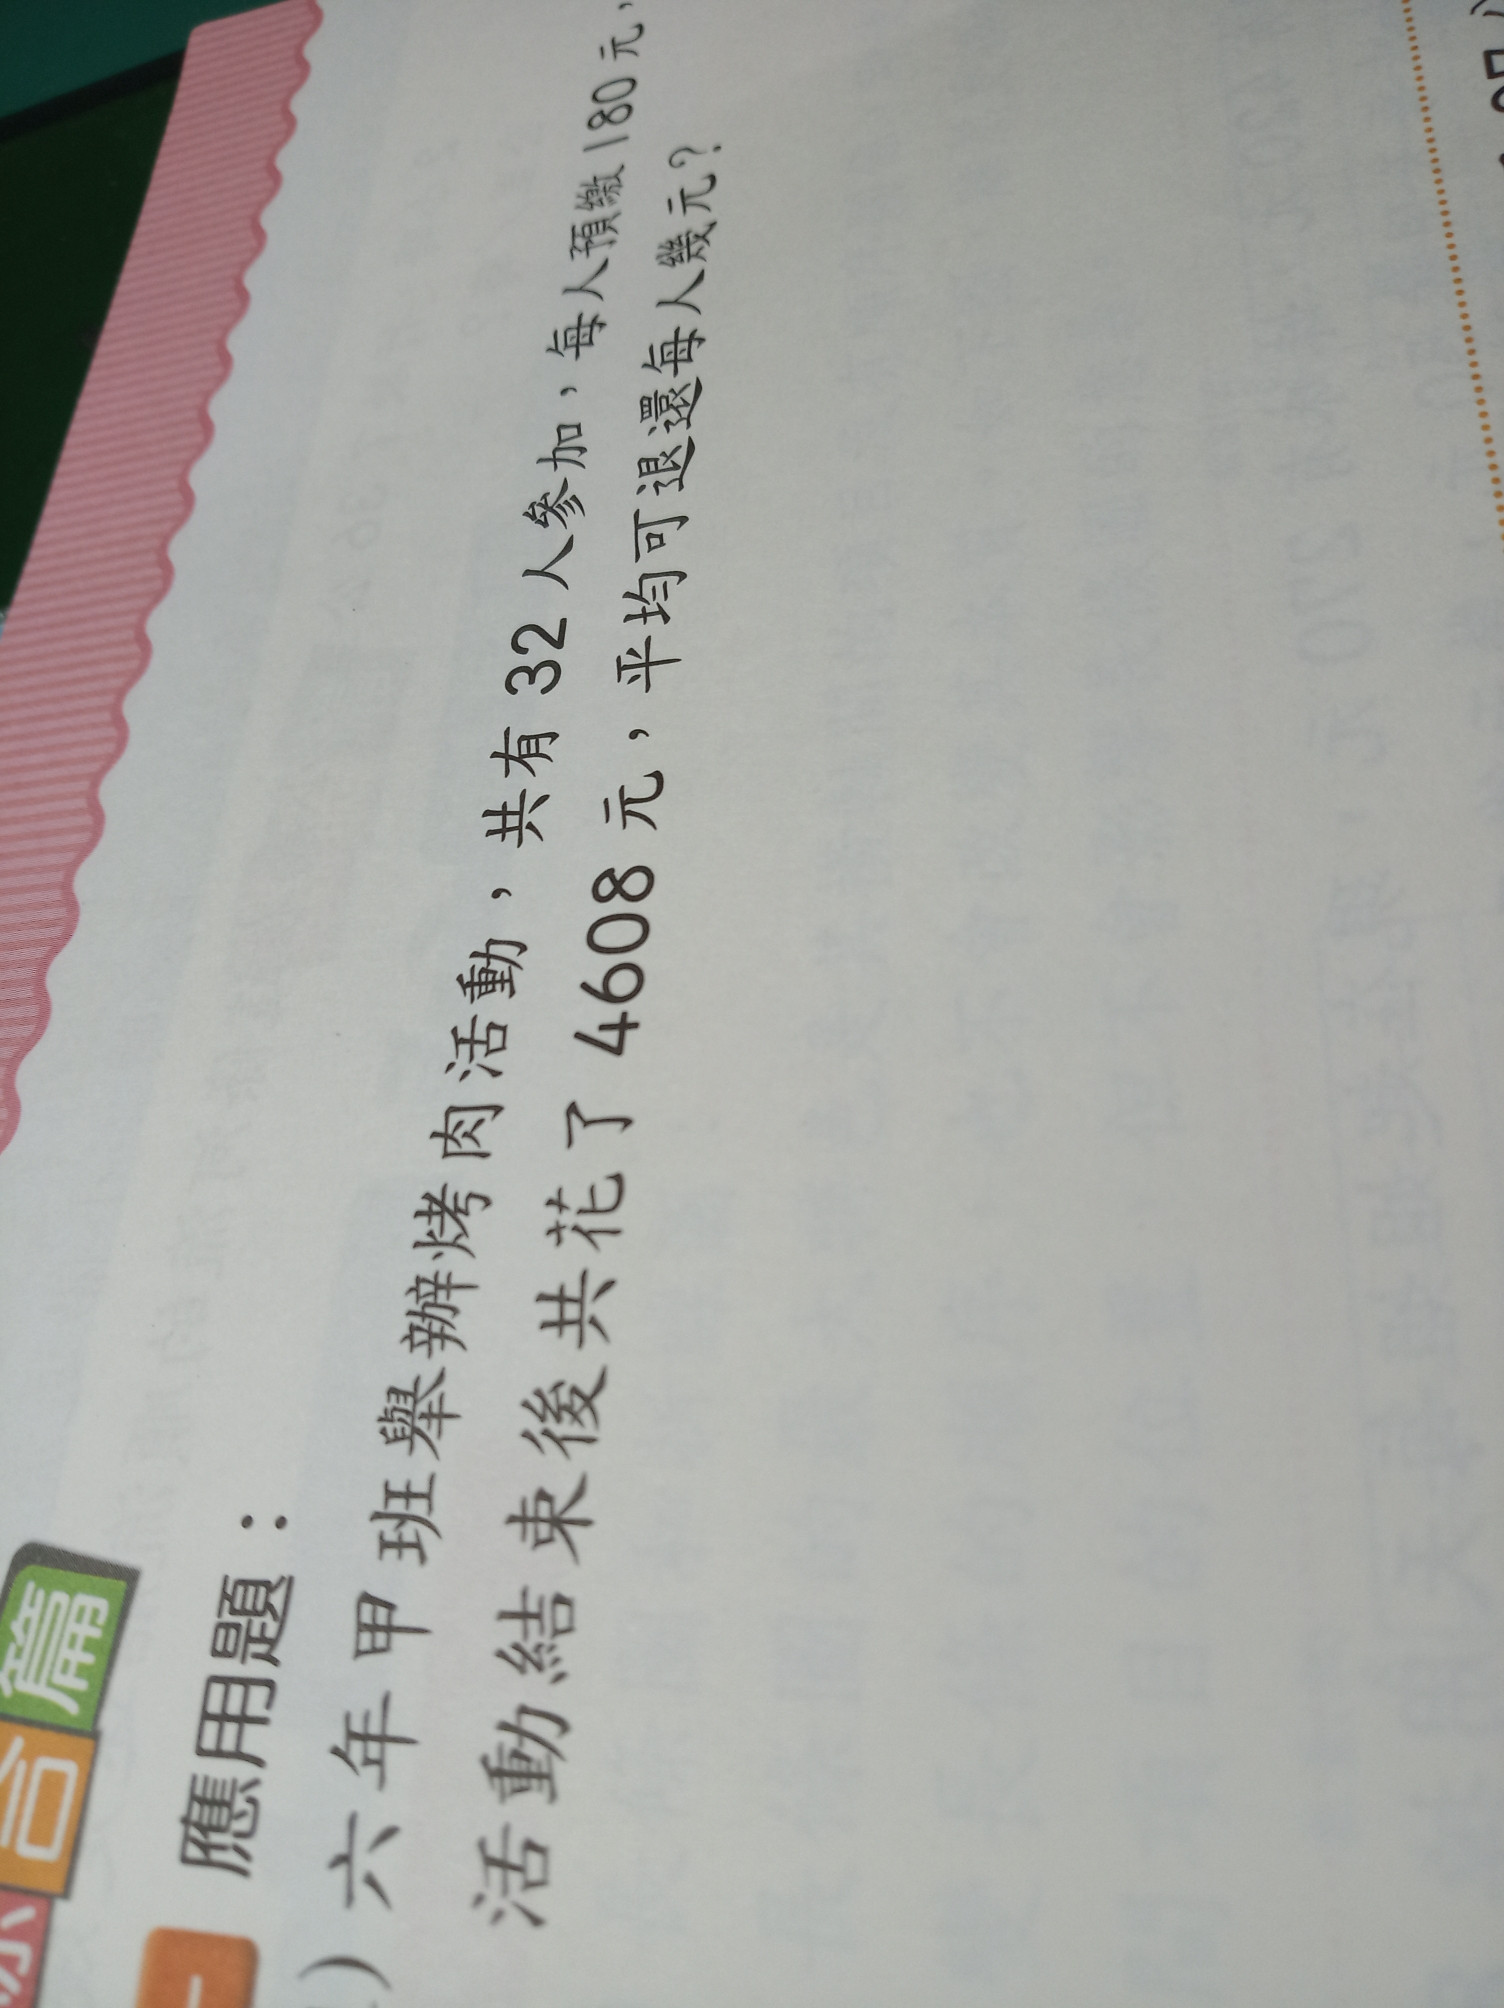 篇
應用題：
六年甲班舉辦烤肉活動，共有32人參加，每人預繳180元，
活動結束後共花了4608元，平均可退還每人幾元？